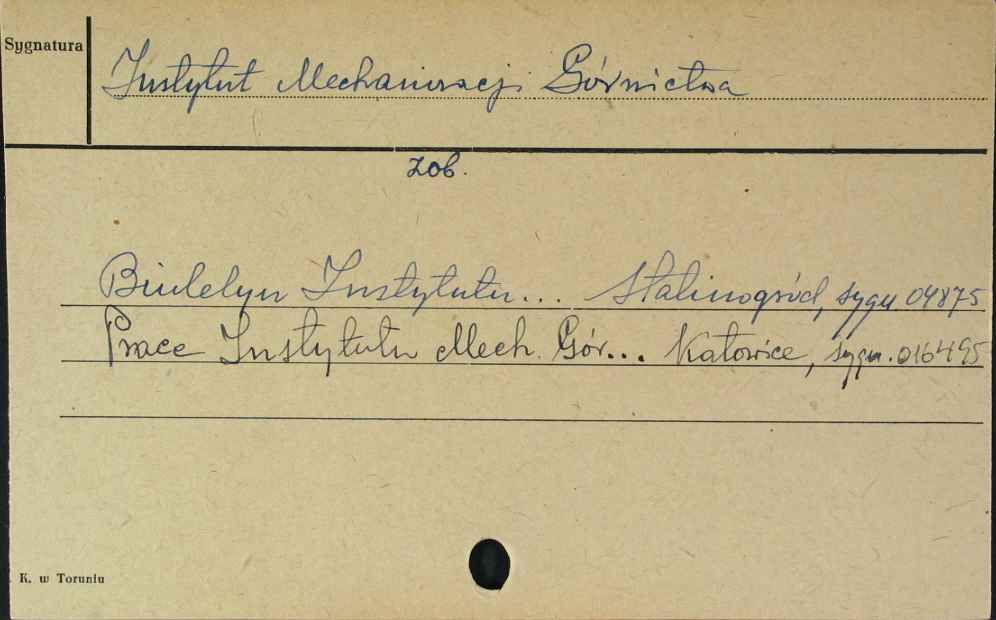 Sygnatura
Instytut Mechanizacji Górnictwa
zob.
Biuletyn Instytutu... Stalinogród, sygn. 04875
Prace Instytutu Mech. Gór... Katowice, sygn. 016495
K. w Toruniu